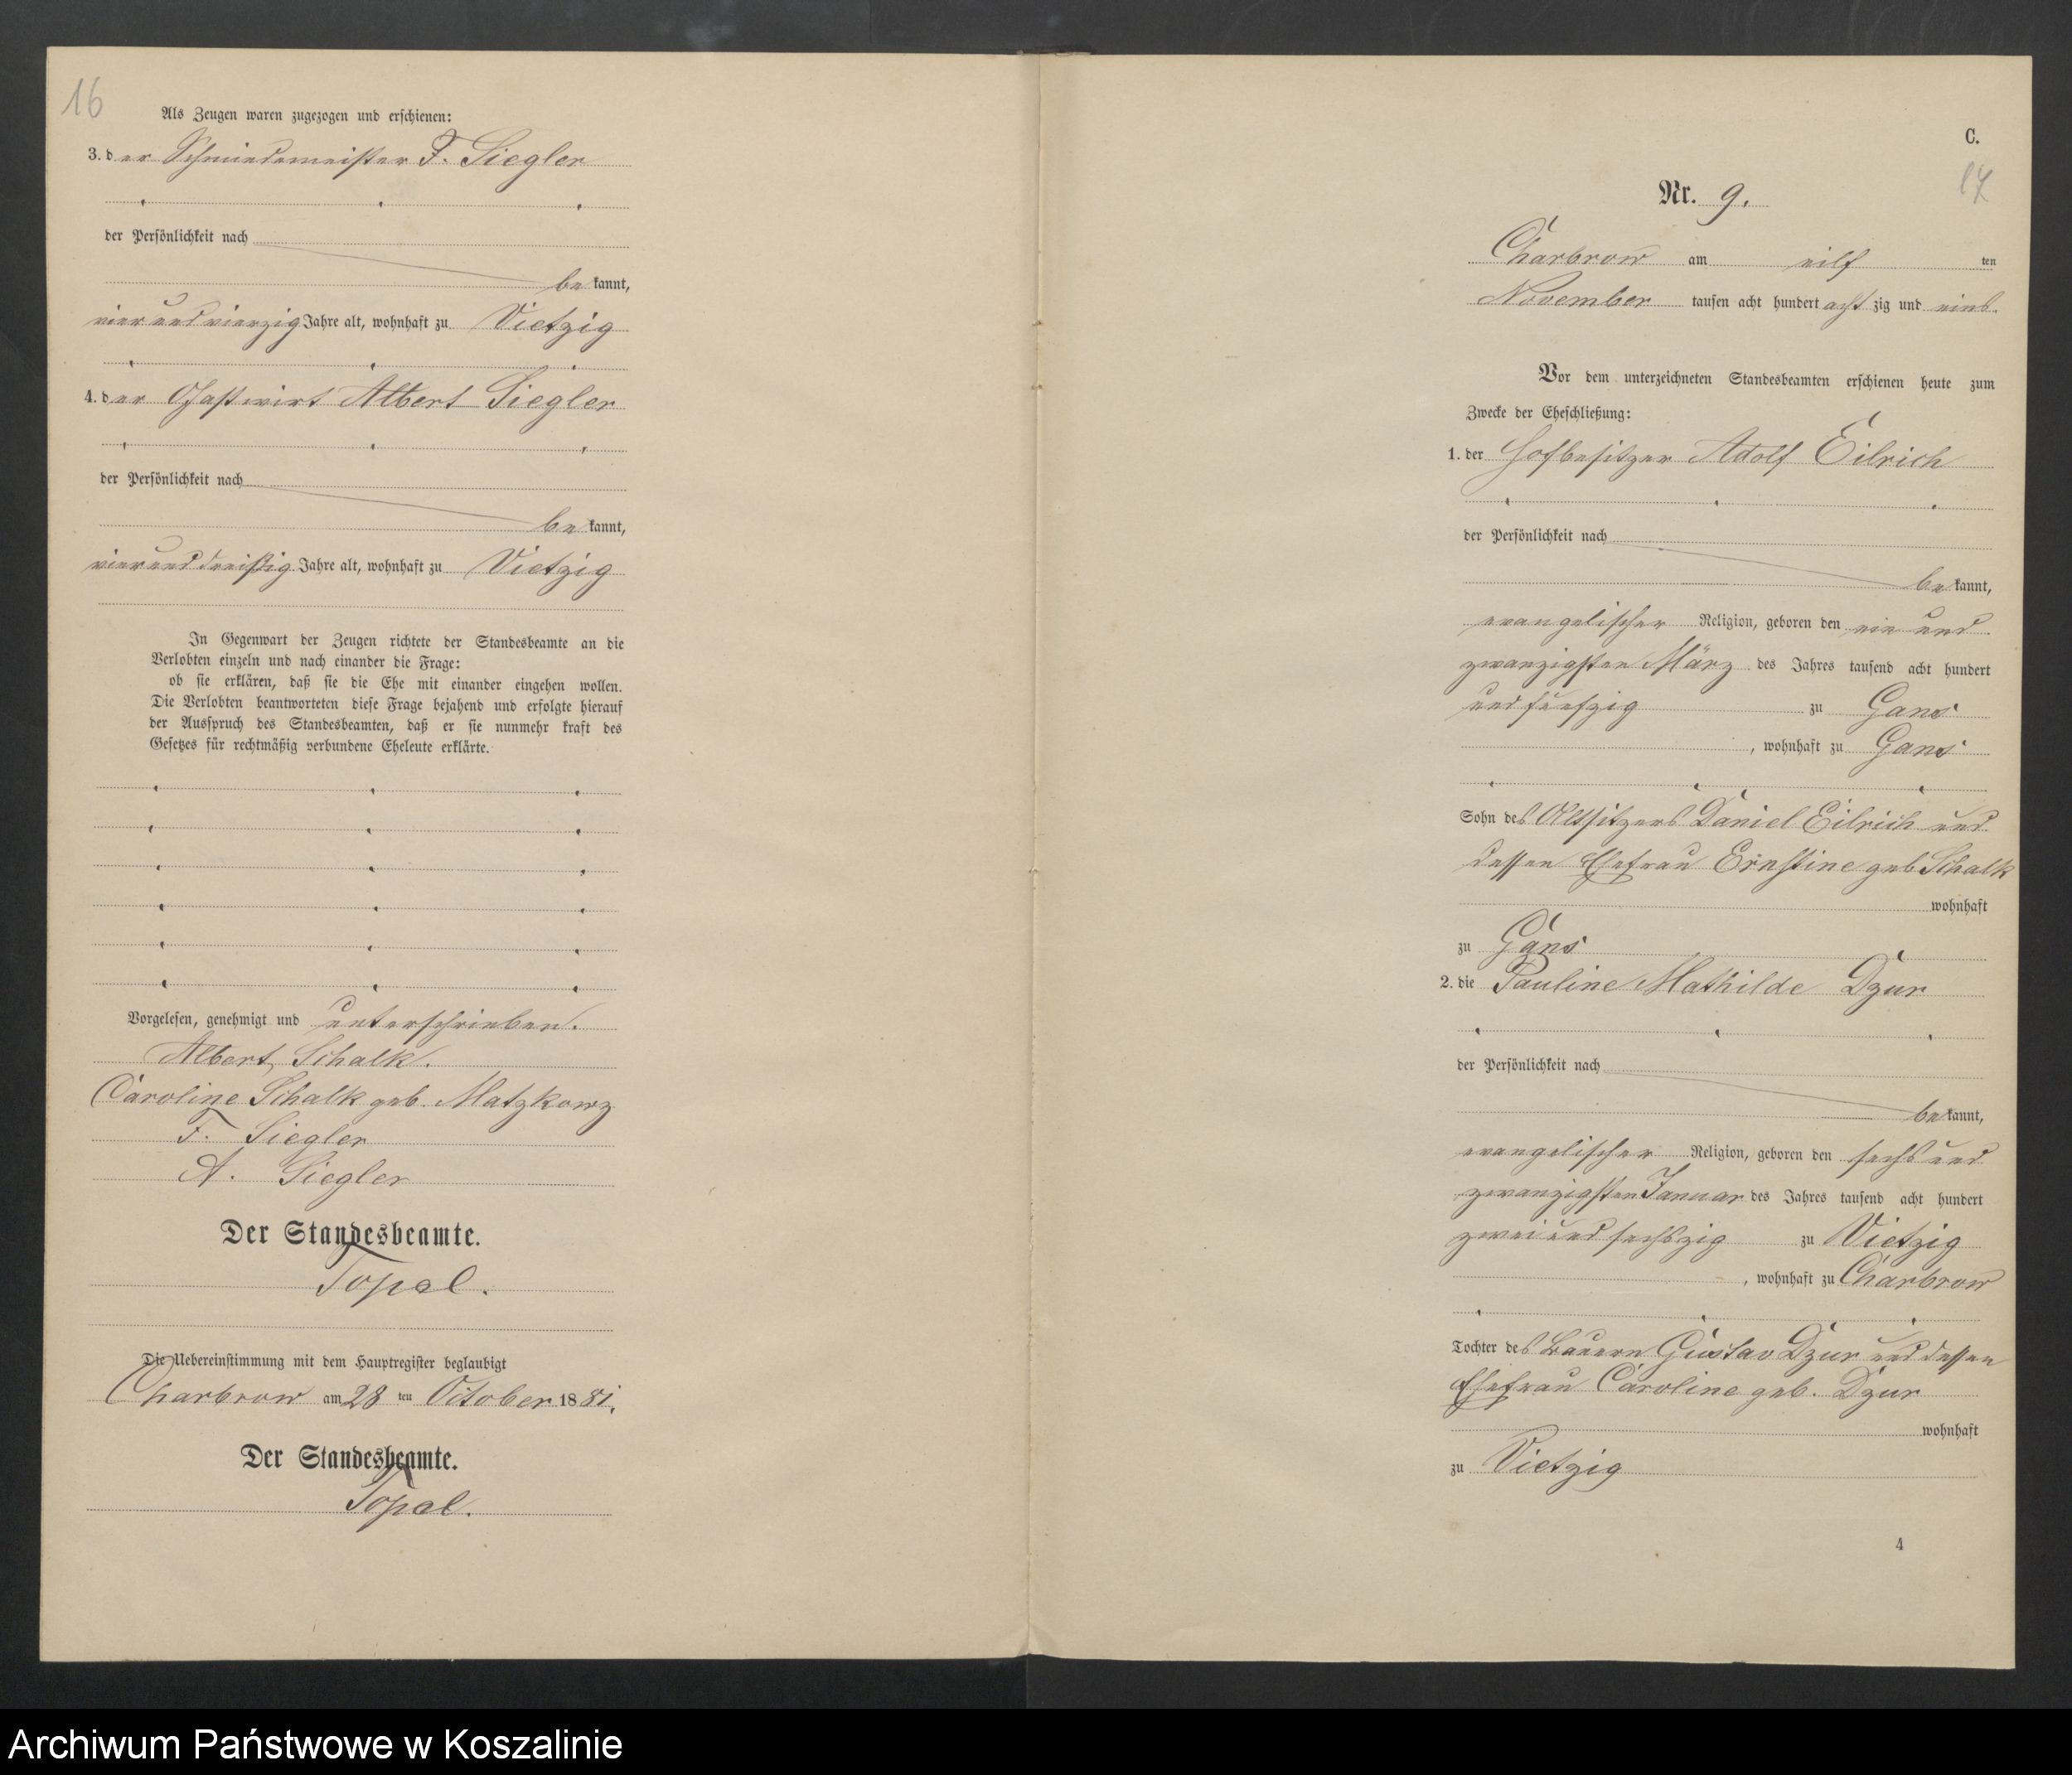 16
Als Zeugen waren zugezogen und erschienen:
3. der Schmiedemeister F. Siegler
der Persönlichkeit nach
bekannt,
vier und vierzig Jahre alt, wohnhaft zu Vietzig
4. der Gastwirt Albert Siegler
der Persönlichkeit nach
bekannt,
vier und dreißig Jahre alt, wohnhaft zu Vietzig
In Gegenwart der Zeugen richtete der Standesbeamte an die
Verlobten einzeln und nach einander die Frage:
ob sie erklären, daß sie die Ehe mit einander eingehen wollen.
Die Verlobten beantworteten diese Frage bejahend und erfolgte hierauf
der Ausspruch des Standesbeamten, daß er sie nunmehr kraft des
Gesetzes für rechtmäßig verbundene Eheleute erklärte.
Vorgelesen, genehmigt und unterschrieben.
Albert Schalk.
Caroline Schalk geb. Matzkowz
F. Siegler
A. Siegler
Der Standesbeamte.
Topel.
Die Uebereinstimmung mit dem Hauptregister beglaubigt
Charbrow am 28 ten October 1881.
Der Standesbeamte.
Topel.
C.
17
Nr. 9.
Charbrow am eilf ten
November tausen acht hundert achtzig und eins.
Vor dem unterzeichneten Standesbeamten erschienen heute zum
Zwecke der Eheschließung:
1. der Hofbesitzer Adolf Eilrich
der Persönlichkeit nach
bekannt,
evangelischer Religion, geboren den ein und
zwanzigsten März des Jahres tausend acht hundert
und fünfzig zu Gans
, wohnhaft zu Gans
Sohn des Altsitzers Daniel Eilrich und
dessen Ehefrau Ernstine geb Schalk
wohnhaft
zu Gans
2. die Pauline Mathilde Dzur
der Persönlichkeit nach
bekannt,
evangelischer Religion, geboren den sechs und
zwanzigsten Januar des Jahres tausend acht hundert
zwei und sechszig zu Vietzig
, wohnhaft zu Charbrow
Tochter des Bauern Gustav Dzur und dessen
Ehefrau Caroline geb. Dzur
wohnhaft
zu Vietzig
4
Archiwum Państwowe w Koszalinie